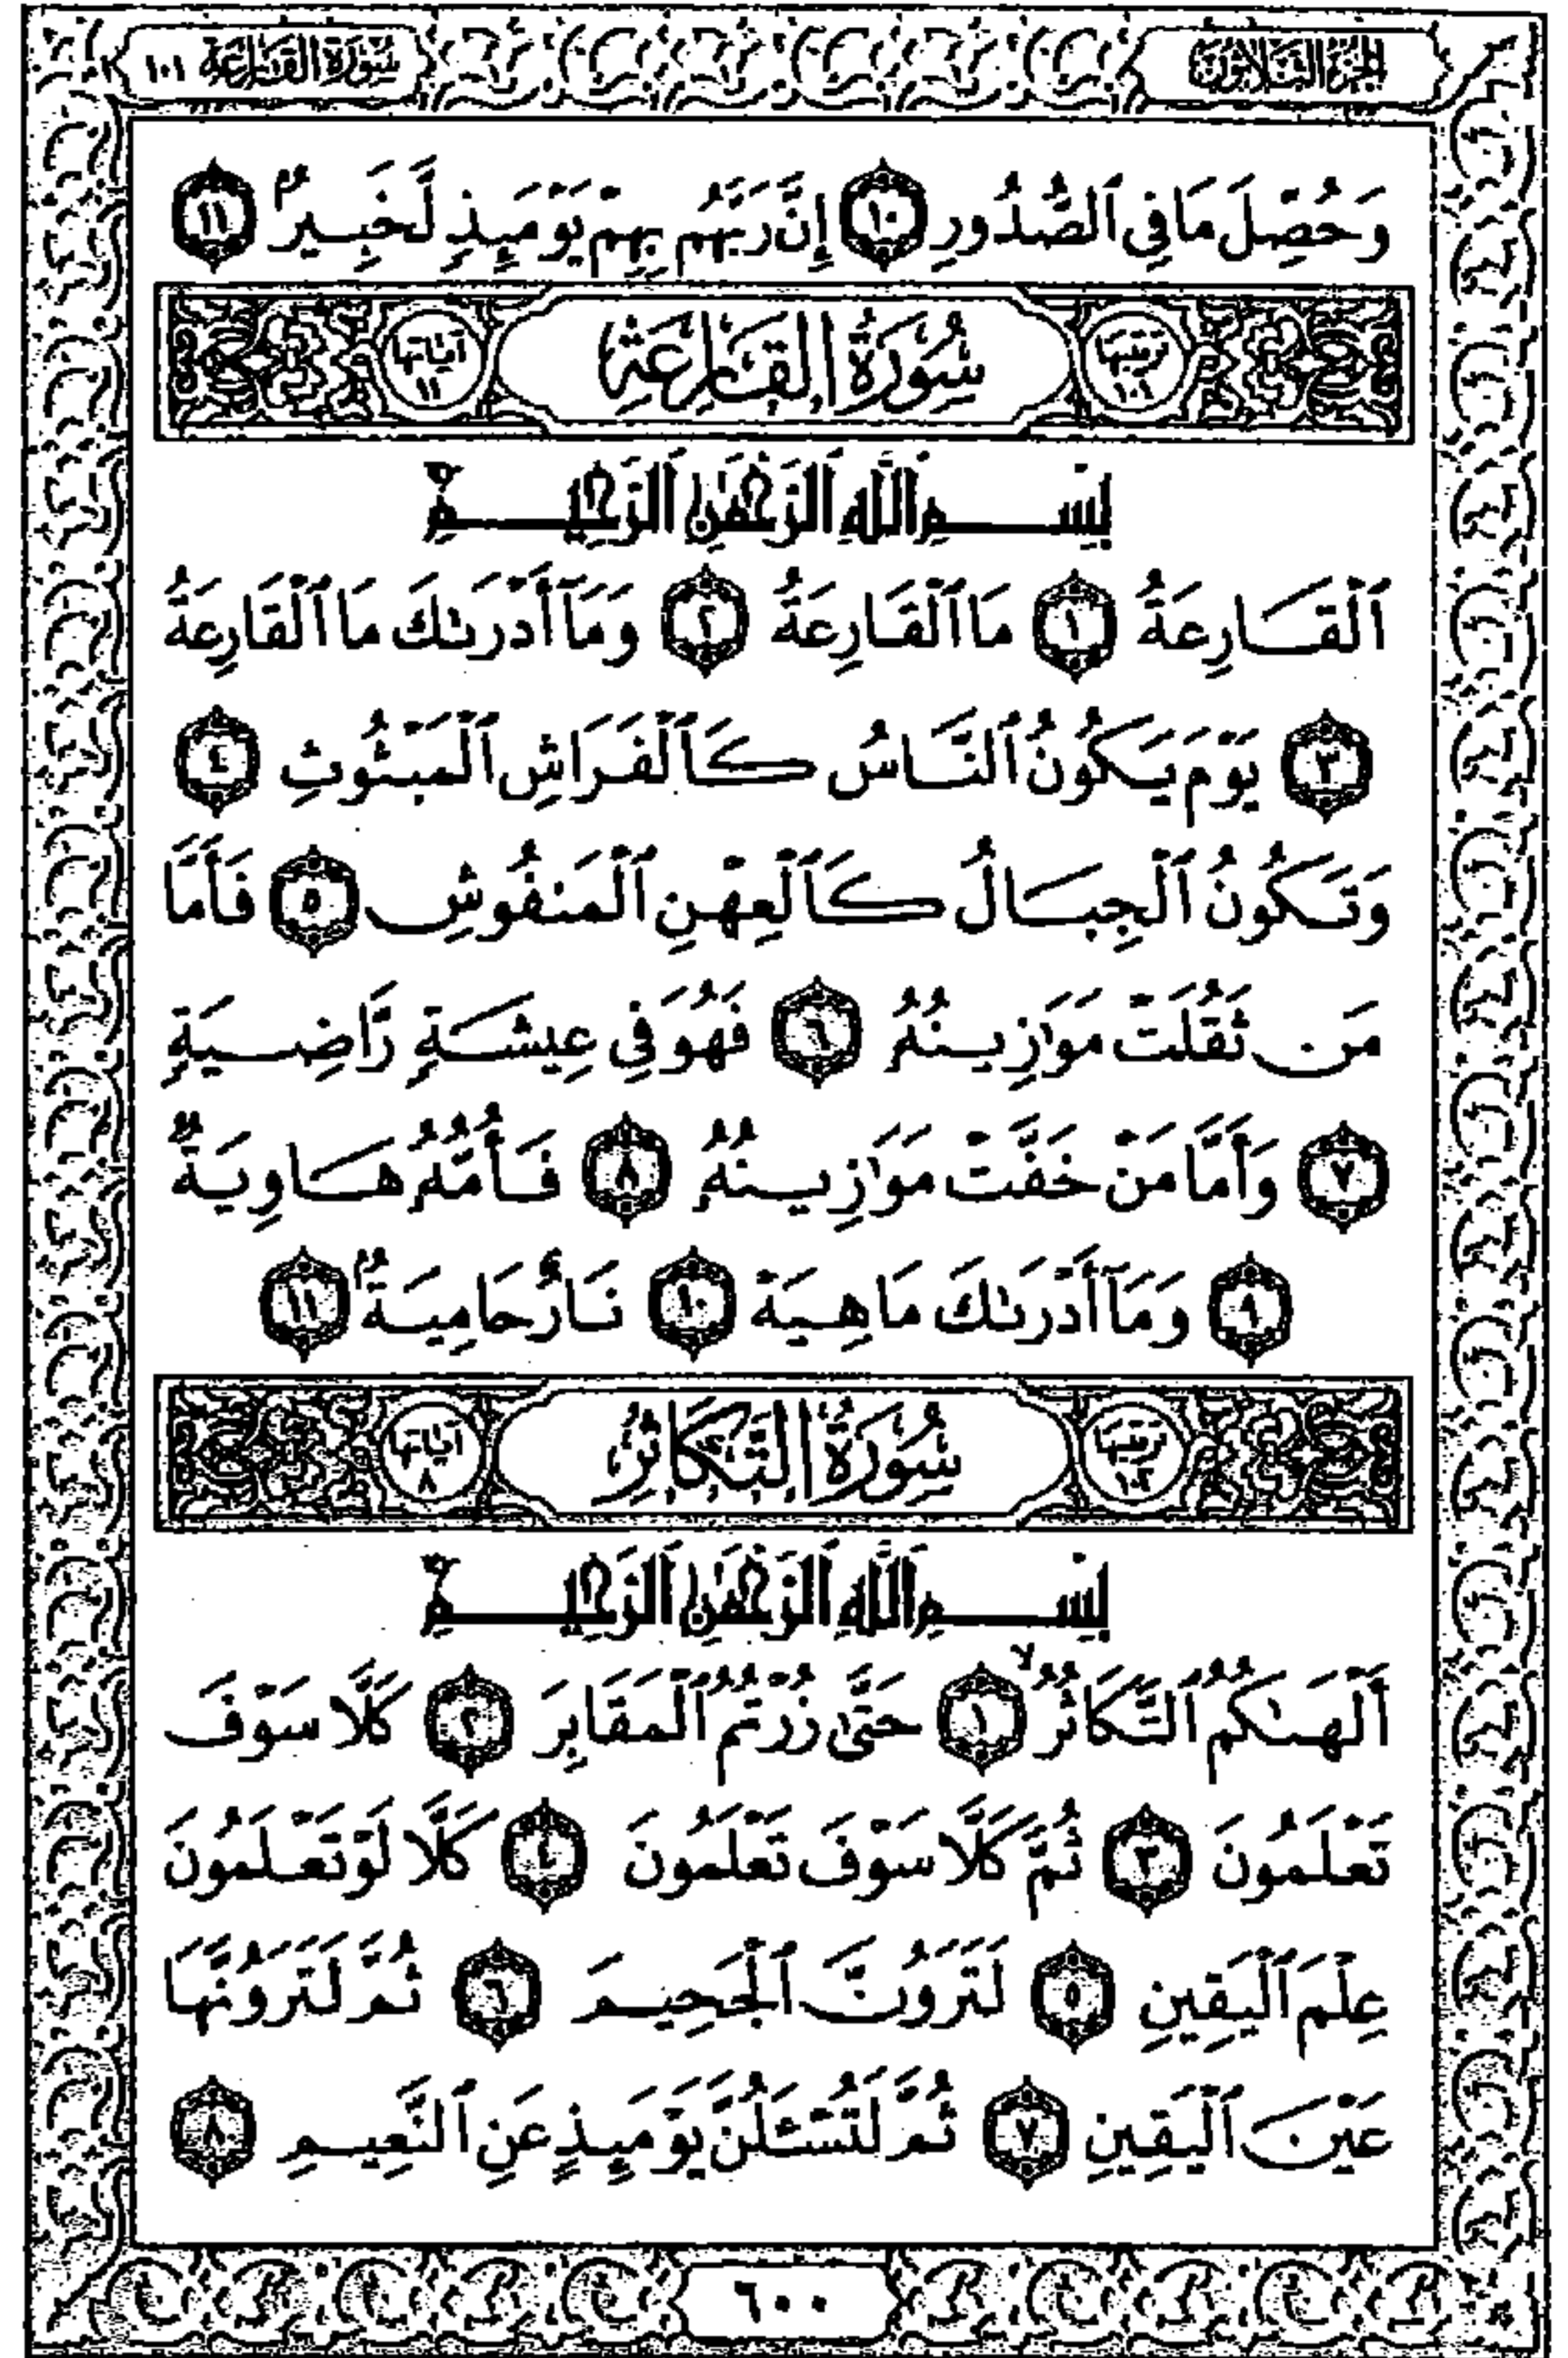 الجزء الثلاثون
سورة القارعة ١٠١
وَحُصِّلَ مَا فِى ٱلصُّدُورِ ١٠ إِنَّ رَبَّهُم بِهِمْ يَوْمَئِذٍ لَّخَبِيرٌۢ ١١
ترتيبها ١٠١ سُورَةُ القَارِعَةِ آياتها ١١
بِسْمِ ٱللَّهِ ٱلرَّحْمَٰنِ ٱلرَّحِيمِ
ٱلْقَارِعَةُ ١ مَا ٱلْقَارِعَةُ ٢ وَمَآ أَدْرَىٰكَ مَا ٱلْقَارِعَةُ
٣ يَوْمَ يَكُونُ ٱلنَّاسُ كَٱلْفَرَاشِ ٱلْمَبْثُوثِ ٤
وَتَكُونُ ٱلْجِبَالُ كَٱلْعِهْنِ ٱلْمَنفُوشِ ٥ فَأَمَّا
مَن ثَقُلَتْ مَوَٰزِينُهُۥ ٦ فَهُوَ فِى عِيشَةٍ رَّاضِيَةٍ
٧ وَأَمَّا مَنْ خَفَّتْ مَوَٰزِينُهُۥ ٨ فَأُمُّهُۥ هَاوِيَةٌ
٩ وَمَآ أَدْرَىٰكَ مَا هِيَهْ ١٠ نَارٌ حَامِيَةٌۢ ١١
ترتيبها ١٠٢ سُورَةُ التَّكَاثُرِ آياتها ٨
بِسْمِ ٱللَّهِ ٱلرَّحْمَٰنِ ٱلرَّحِيمِ
أَلْهَىٰكُمُ ٱلتَّكَاثُرُ ۙ ١ حَتَّىٰ زُرْتُمُ ٱلْمَقَابِرَ ٢ كَلَّا سَوْفَ
تَعْلَمُونَ ٣ ثُمَّ كَلَّا سَوْفَ تَعْلَمُونَ ٤ كَلَّا لَوْ تَعْلَمُونَ
عِلْمَ ٱلْيَقِينِ ٥ لَتَرَوُنَّ ٱلْجَحِيمَ ٦ ثُمَّ لَتَرَوُنَّهَا
عَيْنَ ٱلْيَقِينِ ٧ ثُمَّ لَتُسْـَٔلُنَّ يَوْمَئِذٍ عَنِ ٱلنَّعِيمِ ٨
٦٠٠